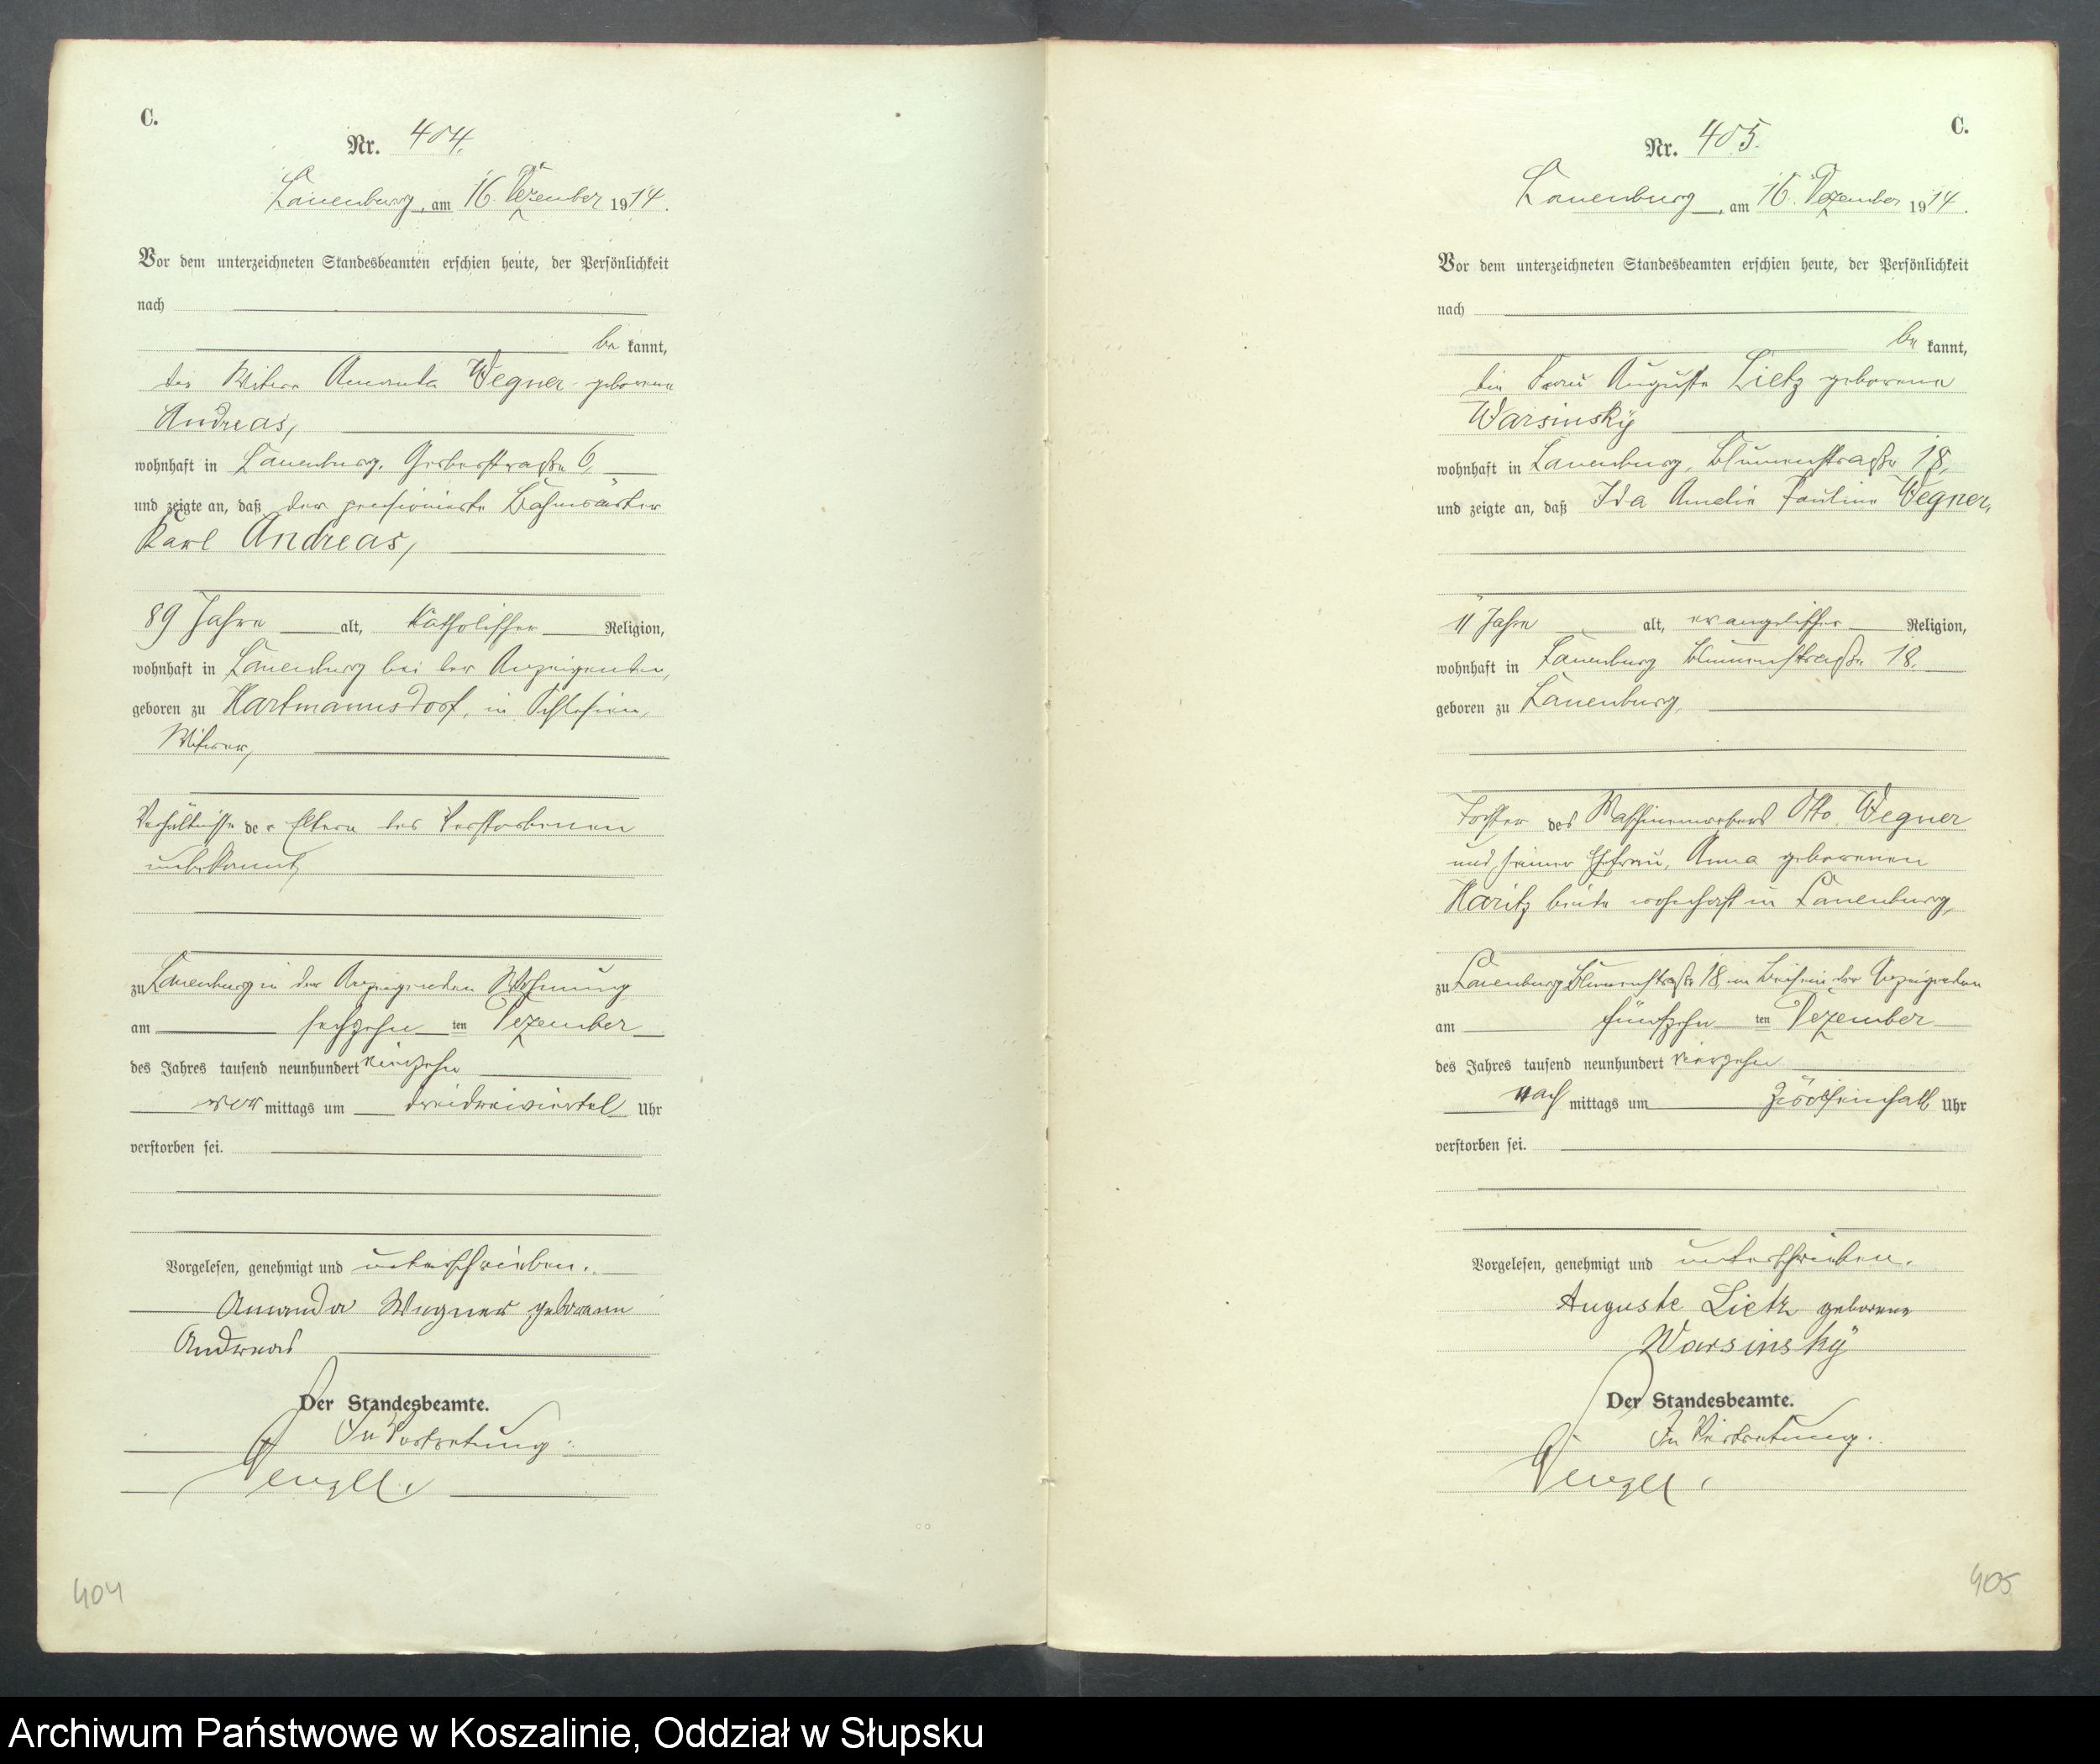 C.
Nr. 404.
Lauenburg, am 16. Dezember 1914.
Vor dem unterzeichneten Standesbeamten erschien heute, der Persönlichkeit
nach
be kannt,
die Witwe Amanda Wegner geborene
Andreas,
wohnhaft in Lauenburg, Gerberstraße 6,
und zeigte an, daß der pensionierte Bahnwärter
Karl Andreas,
89 Jahre alt, katholischer Religion,
wohnhaft in Lauenburg bei der Anzeigenden,
geboren zu Hartmannsdorf, in Schlesien,
Witwer,
Verhältnisse der Eltern des Verstorbenen
unbekannt,
zu Lauenburg in der Anzeigenden Wohnung
am sechzehn ten Dezember
des Jahres tausend neunhundert vierzehn
vor mittags um dreidreiviertel Uhr
verstorben sei.
Vorgelesen, genehmigt und unterschrieben.
Amanda Wegner geborene
Andreas
Der Standesbeamte.
In Vertretung:
Wenzel.
404
C.
Nr. 405.
Lauenburg, am 16. Dezember 1914.
Vor dem unterzeichneten Standesbeamten erschien heute, der Persönlichkeit
nach
be kannt,
die Frau Auguste Lietz geborene
Warsinsky
wohnhaft in Lauenburg, Blumenstraße 18,
und zeigte an, daß Ida Amelie Pauline Wegner,
11 Jahre alt, evangelischer Religion,
wohnhaft in Lauenburg Blumenstraße 18,
geboren zu Lauenburg,
Tochter des Otto Wegner
und seiner Ehefrau, Anna geborenen
Haritz beide wohnhaft in Lauenburg,
zu Lauenburg Blumenstraße 18, im Beisein der Anzeigenden
am fünfzehn ten Dezember
des Jahres tausend neunhundert vierzehn
nach mittags um zwölfeinhalb Uhr
verstorben sei.
Vorgelesen, genehmigt und unterschrieben.
Auguste Lietz geborene
Warsinsky
Der Standesbeamte.
In Vertretung:
Wenzel.
405
Archiwum Państwowe w Koszalinie, Oddział w Słupsku